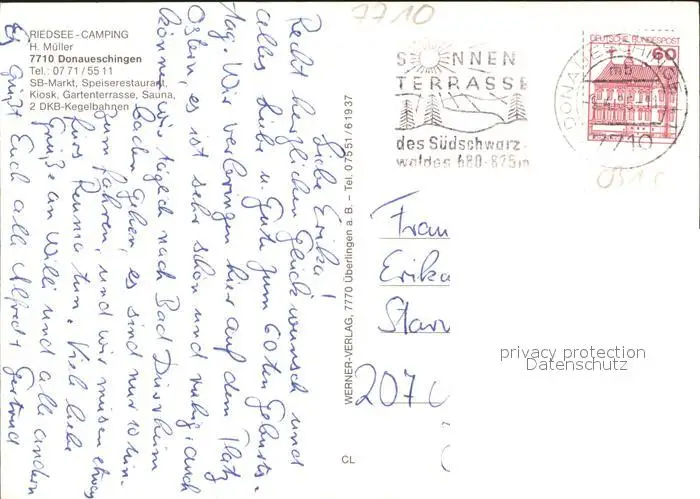 RIEDSEE-CAMPING
H. Müller
7710 Donaueschingen
Tel.: 07 71 / 55 11
SB-Markt, Speiserestaurant,
Kiosk, Gartenterrasse, Sauna,
2 DKB-Kegelbahnen
Liebe Erika!
Recht herzlichen Glückwunsch und
alles Liebe u. Gute zum 60ten Geburts-
tag. Wir verbringen hier auf dem Platz
Ostern, es ist sehr schön und ruhig, auch
können wir täglich nach Bad Dürrheim
Baden gehen, es sind nur 10 Min.
zum fahren, und wir müßen etwas
fürs Rheuma tun. Viele liebe
Grüße an Willi und alle andern
Es grüßt Euch alle Alfred + Gertrud
WERNER-VERLAG, 7770 Überlingen a. B. – Tel. 07551/61937
CL
7710
SONNEN
TERRASSE
des Südschwarz-
waldes 680-825m
DEUTSCHE BUNDESPOST
60
7710
Frau
Erika
Star
207
privacy protection
Datenschutz